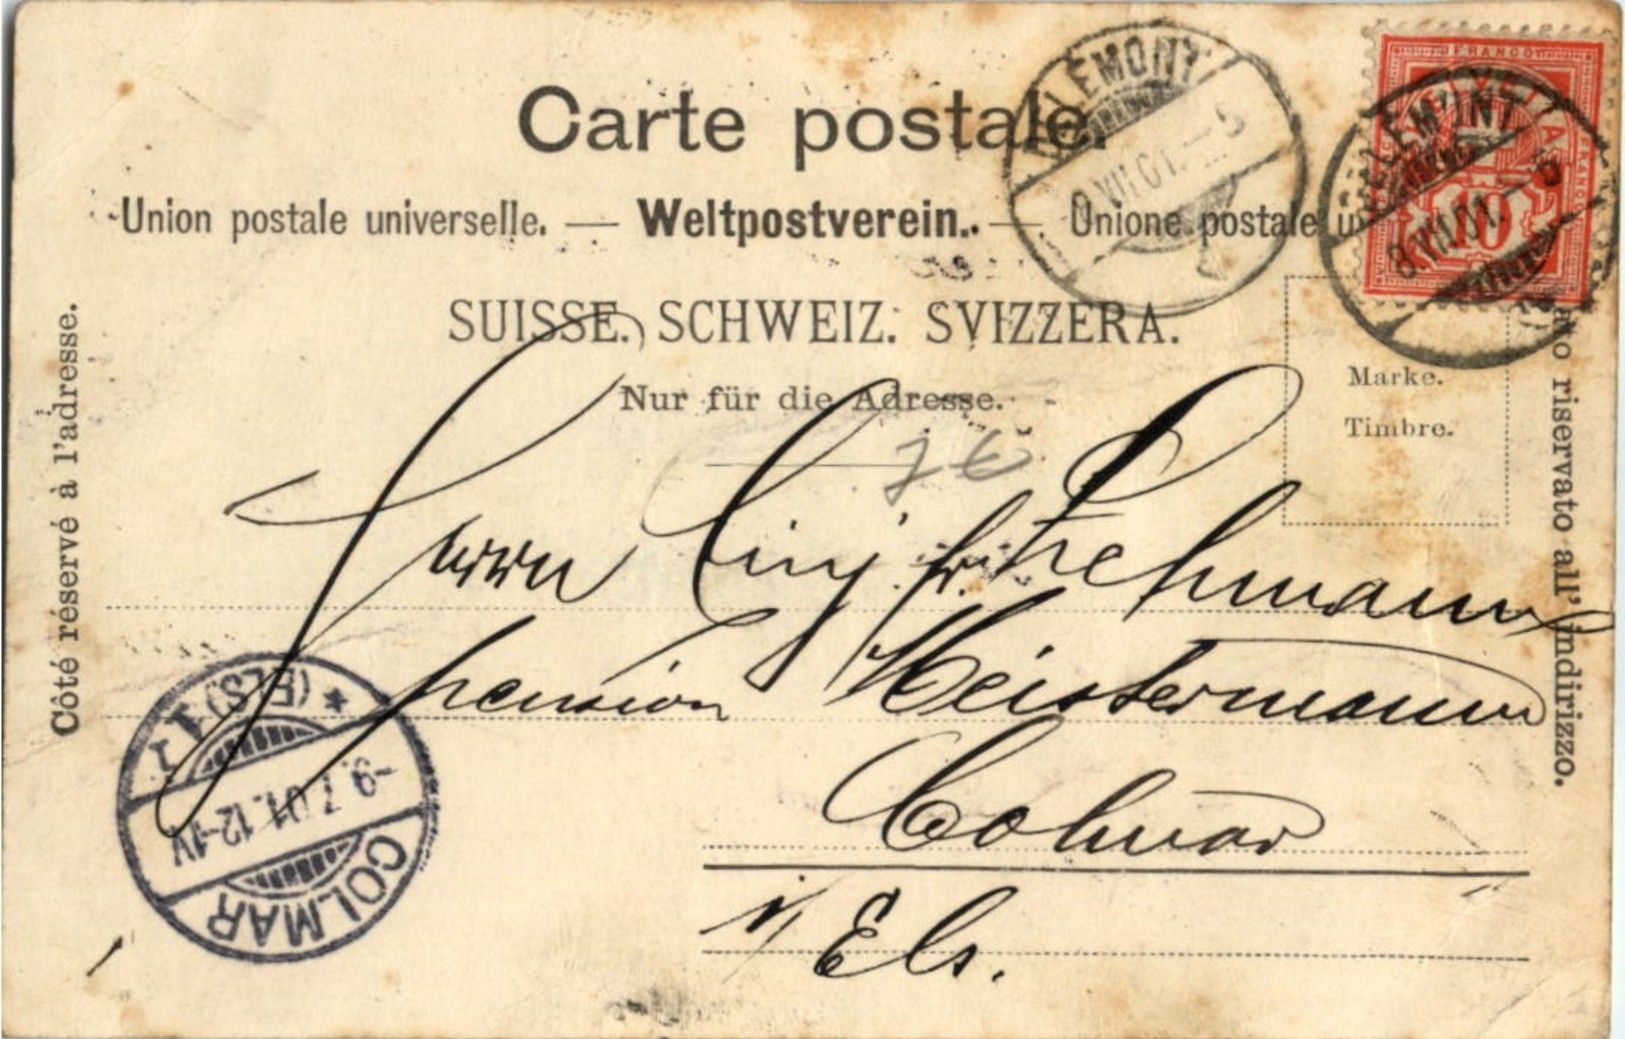 Carte postale.
Union postale universelle. — Weltpostverein. — Unione postale u
SUISSE. SCHWEIZ. SVIZZERA.
Nur für die Adresse.
Côté réservé à l'adresse.
riservato all' indirizzo.
Marke.
Timbre.
FRANCO
10
DELÉMONT
8.VII.01.–5
DELÉMONT
8.VII.01.–5
7€
Herrn
Pension Meistermann
Colmar
i/ Els.
COLMAR
-9.7.01.12-1V
(ELS) 1